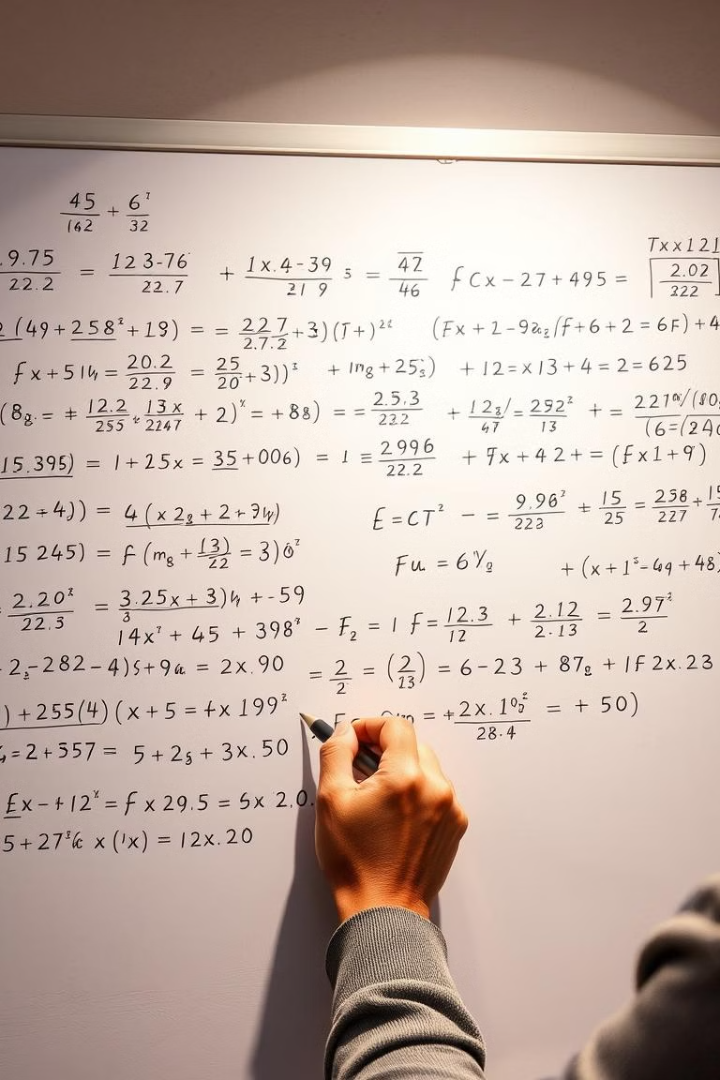 45/162 + 6⁷/32
.9.75/22.2 = 123-76/22.7 + 1x.4-39/21 9 s = 42/46 f Cx - 27 + 495 =
Txx121
2.02/322
(49 + 258² + 19) = = 227/2.7.2 + 3)(T+)²² (Fx + 2 - 9a₂/f + 6 + 2 = 6F) + 4
fx + 514 = 20.2/22.9 = 25/20 + 3))³ + 1m8 + 25₃) + 12 = x13 + 4 = 2 = 625
(8g. = + 12.2/255 + 13x/2247 + 2)ˣ = + 88) = = 2.5.3/232 + 128/47 = 292²/13 + =
15.395) = 1 + 25x = 35 + 006) = 1 ≡ 2996/22.2 + 7x + 42 + = (fx1 + 9)
22 + 4)) = 4(x2₈ + 2 + 74) E = CT² - = 9.96²/223 + 15/25 = 258/227 +
15 245) = f(m₈ + 13)/22 = 3)6² Fu = 6 + (x + 1⁵ - 49 + 48)
2.20²/22.3 = 3.25x + 3)/3 4 + - 59
14x² + 45 + 398² - F₂ = 1 f = 12.3/12 + 2.12/2.13 = 2.97²/2
2₃ - 282 - 4)s + 9a = 2x.90 = 2/2 = (2/13) = 6 - 23 + 87₂ + 1F2x.23
) + 255(4)(x + 5 = +x 199² = + 2x.10⁵²/28.4 = + 50)
= 2 + 557 = 5 + 2₈ + 3x.50
Ex - +12ˣ = f x 29.5 = 5x 2.0.
5 + 27 x (1x) = 12x.20